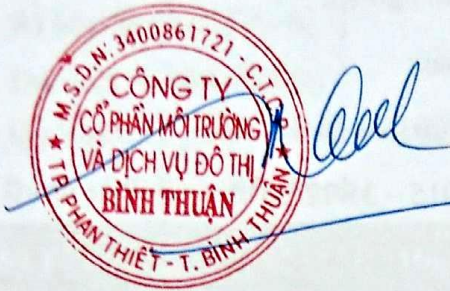 M.S.D.N: 3400861721 - C.T.C.P
CÔNG TY
CỔ PHẦN MÔI TRƯỜNG
VÀ DỊCH VỤ ĐÔ THỊ
BÌNH THUẬN
TP. PHAN THIẾT - T. BÌNH THUẬN